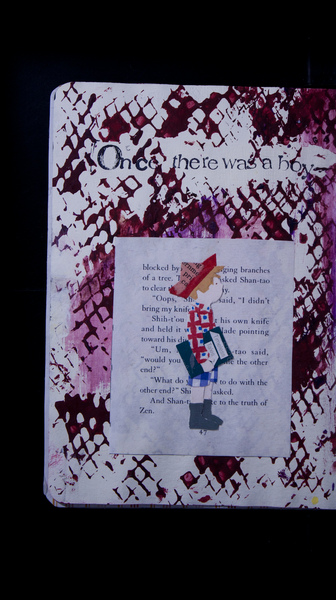 Once, there was a boy
blocked by ging branches
of a tree. T asked Shan-tao
to clear
"Oops, said, "I didn't
bring my knife
Shih-t'ou his own knife
and held it lade pointing
toward his
"Um, tao said,
"would you the other
end?"
"What do to do with the
other end?" Sh asked.
And Shan-t to the truth of
Zen.
47